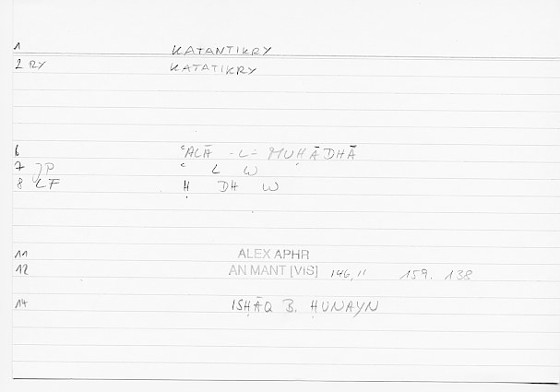 1 KATANTIKRY
2 RY KATATIKRY
6 ʿALĀ -L- MUḤĀDHĀ
7 JP ʿ L W
8 LF Ḥ DH W
11 ALEX APHR
12 AN MANT [VIS] 146,11 159. 138
14 ISḤĀQ B. ḤUNAYN